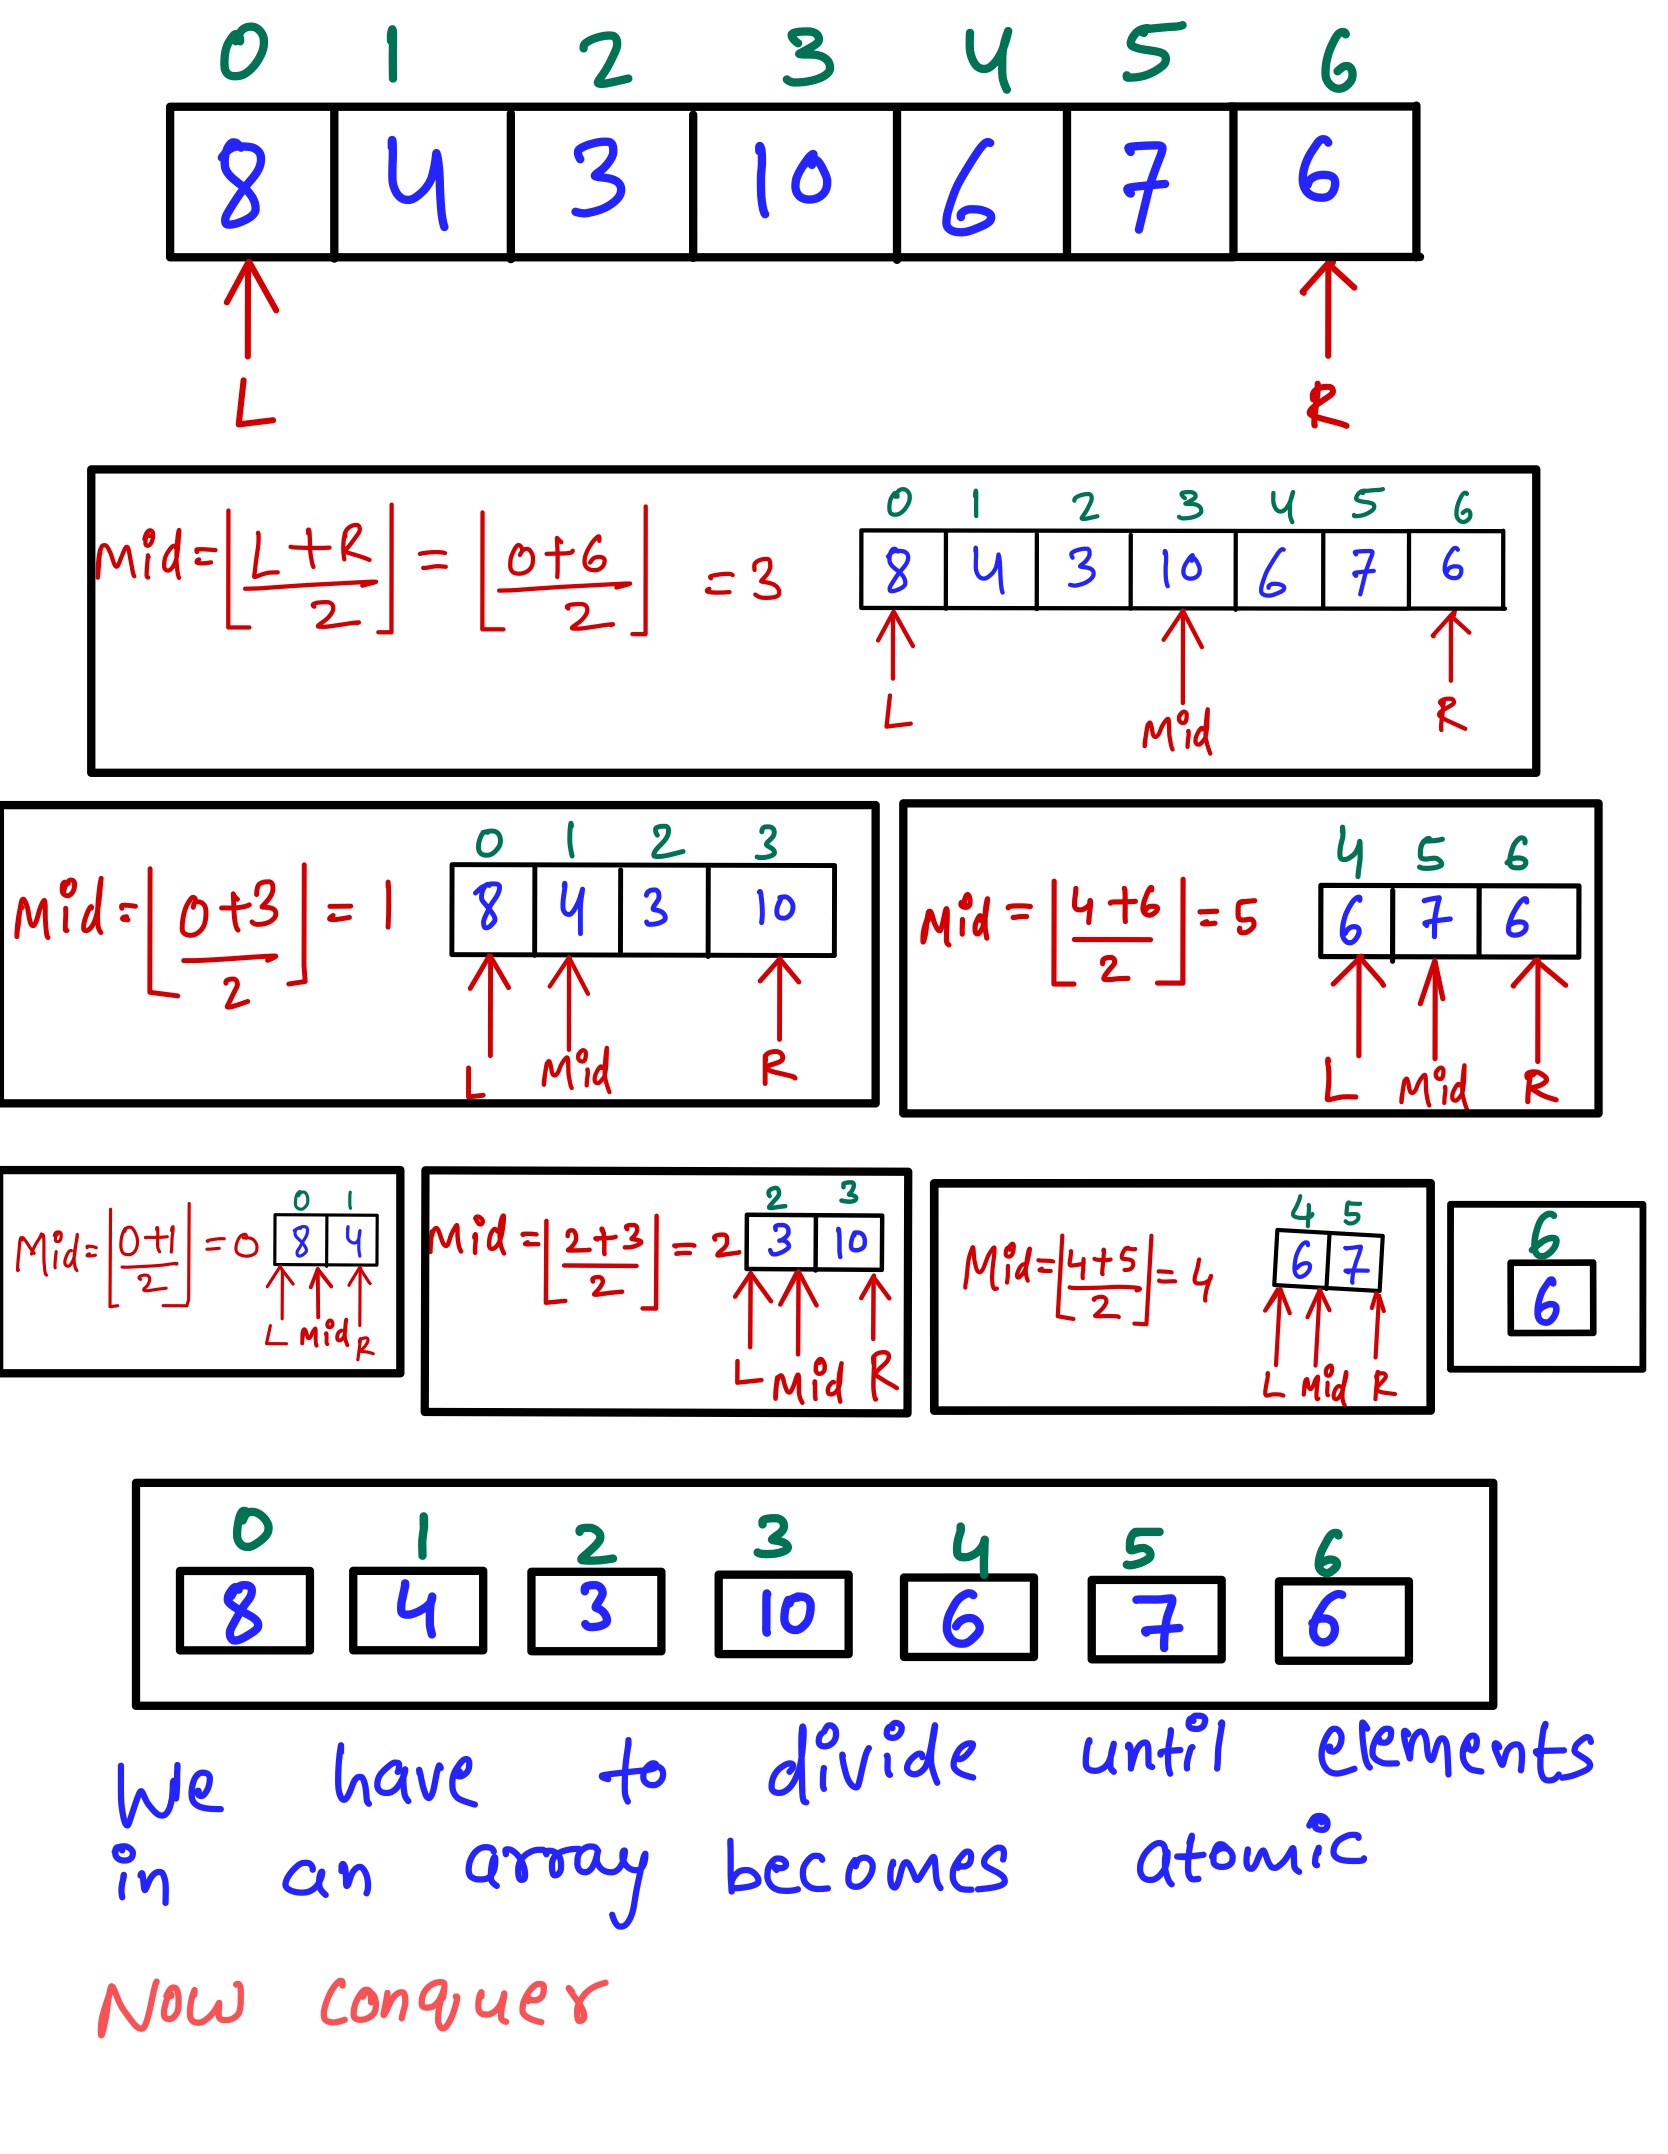 0 1 2 3 4 5 6
8 4 3 10 6 7 6
L R
Mid = ⌊(L+R)/2⌋ = ⌊(0+6)/2⌋ = 3
0 1 2 3 4 5 6
8 4 3 10 6 7 6
L Mid R
Mid = ⌊(0+3)/2⌋ = 1
0 1 2 3
8 4 3 10
L Mid R
Mid = ⌊(4+6)/2⌋ = 5
4 5 6
6 7 6
L Mid R
Mid = ⌊(0+1)/2⌋ = 0
0 1
8 4
L Mid R
Mid = ⌊(2+3)/2⌋ = 2
2 3
3 10
L Mid R
Mid = ⌊(4+5)/2⌋ = 4
4 5
6 7
L Mid R
6
6
0 1 2 3 4 5 6
8 4 3 10 6 7 6
We have to divide until elements
in an array becomes atomic
Now conquer